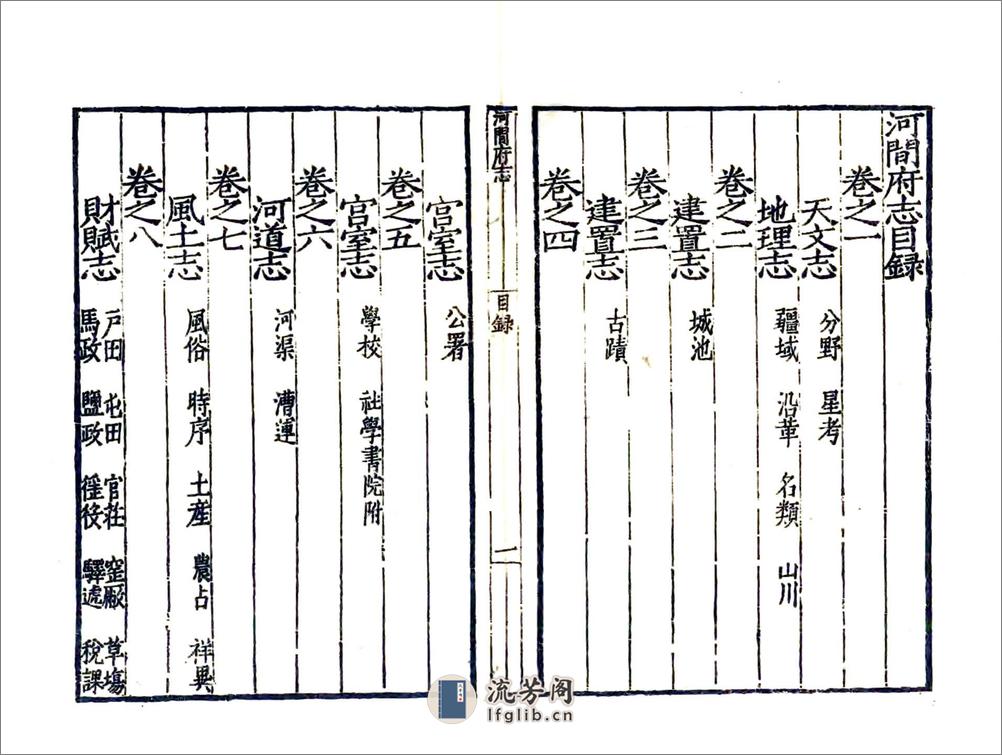 河間府志目録
卷之一
天文志 分野 星考
地理志 疆域 沿革 名類 山川
卷之二
建置志 城池
卷之三
建置志 古蹟
卷之四
河間府志 目録 一
宫室志 公署
卷之五
宫室志 學校 社學書院附
卷之六
河道志 河渠 漕運
卷之七
風土志 風俗 時序 土産 農占 祥異
卷之八
財賦志 戸田 屯田 官莊 窑厰 草塲
馬政 鹽政 徭役 驛遞 稅課
流芳阁
lfglib.cn